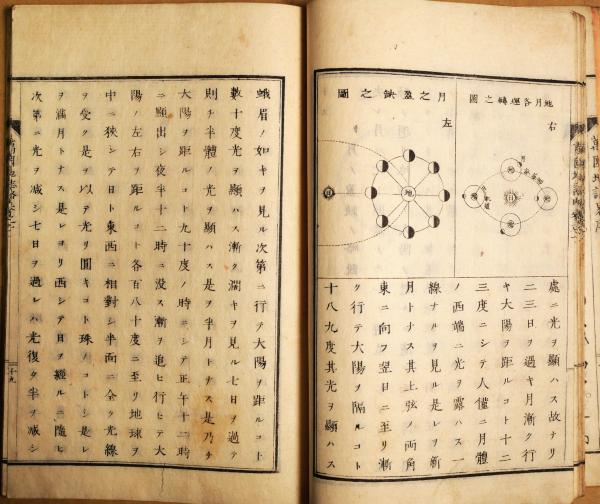 地月各運轉之圖
右
月之盈缺之圖
左
地
日
處ニ光ヲ顯ハス故ナリ
二三日ヲ過キ月漸ク行
キ大陽ヲ距ルコト十二
三度ニシテ人僅ニ月體
ノ西端ニ光ヲ露ハス一
線ナルヲ見ル是レヲ新
月トナス其上弦ノ両角
東ニ向フ翌日ニ至リ漸
ク行テ大陽ヲ隔ルコト
十八九度其光ヲ顯ハス
蛾眉ノ如キヲ見ル次第ニ行テ大陽ヲ距ルコト
數十度光ヲ顯ハス漸ク濶キヲ見ル七日ヲ過テ
則チ半體ノ光ヲ顯ハス是ヲ半月トナス是乃チ
大陽ヲ距ルコト九十度ノ時ニシテ正午十二時
ニ顯出シ夜半十二時ニ没ス漸ヲ追ヒ行テ大
陽ノ左右ヲ距ルコト各百八十度ニ至リ地球ヲ
中ニ狹シテ日ト東西ニ相對シ半面ニ全ク光線
ヲ受ク是ヲ以テ光リ圓キコト珠ノコトシ是レ
ヲ滿月トナス是レヨリ西シテ日ヲ經ルニ隨ヒ
次第ニ光ヲ减シ七日ヲ過レハ光復タ半ヲ减シ
十九